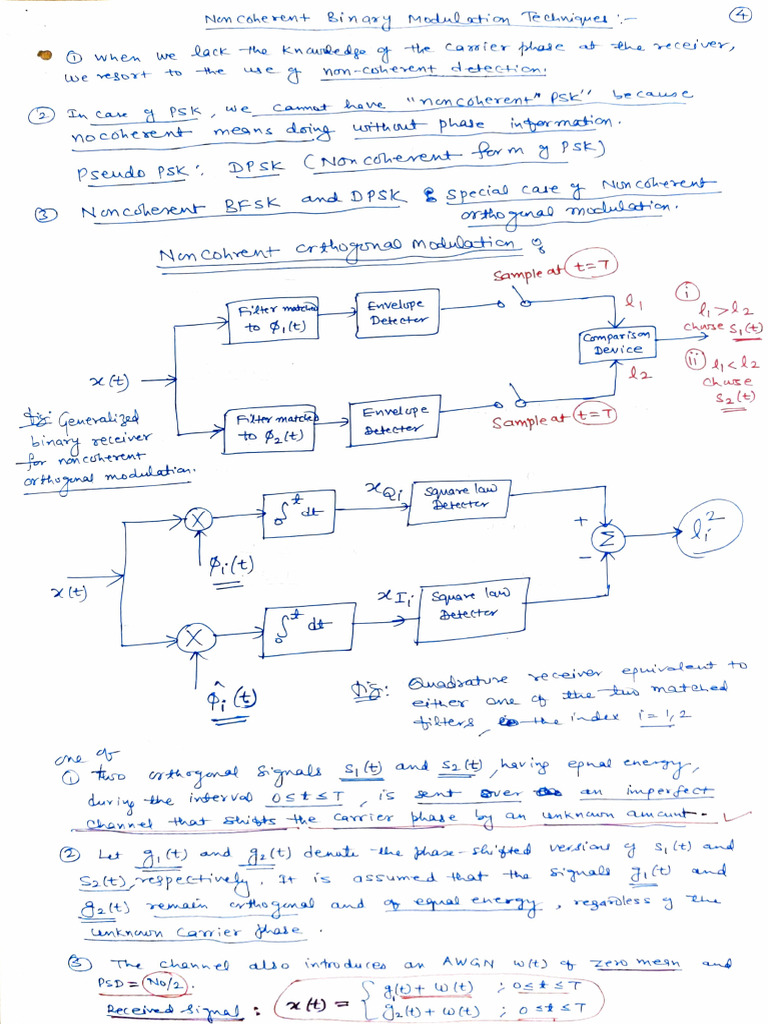 Noncoherent Binary Modulation Techniques :-
4
① When we lack the knowledge of the carrier phase at the receiver,
we resort to the use of non-coherent detection.
② In case of PSK, we cannot have "noncoherent" PSK" because
nocoherent means doing without phase information.
Pseudo PSK : DPSK (Noncoherent form of PSK)
③ Noncoherent BFSK and DPSK : Special case of Noncoherent
orthogonal modulation.
Noncohrent orthogonal modulation :
Sample at t=T
Filter matched
to φ₁(t)
Envelope
Detector
l₁
i
l₁>l₂
choose s₁(t)
Comparison
Device
x(t)
ii l₁<l₂
choose
s₂(t)
l₂
Filter matched
to φ₂(t)
Envelope
Detector
Sample at t=T
Fig: Generalized
binary receiver
for noncoherent
orthogonal modulation.
x(t)
X
∫₀ᵗ dt
xQi
Square law
Detector
φi(t)
+
Σ
−
li²
X
∫₀ᵗ dt
xIi
Square law
Detector
φ̂i(t)
Fig: Quadrature receiver equivalent to
either one of the two matched
filters, the index i=1,2
one of
① Two orthogonal signals s₁(t) and s₂(t), having equal energy,
during the interval 0≤t≤T, is sent over an imperfect
channel that shifts the carrier phase by an unknown amount.
② Let g₁(t) and g₂(t) denote the phase-shifted versions of s₁(t) and
s₂(t), respectively. It is assumed that the signals g₁(t) and
g₂(t) remain orthogonal and of equal energy, regardless of the
unknown carrier phase.
③ The channel also introduces an AWGN w(t) of zero mean and
PSD = No/2.
Received signal : x(t) = { g₁(t) + w(t) ; 0≤t≤T
g₂(t) + w(t) ; 0≤t≤T